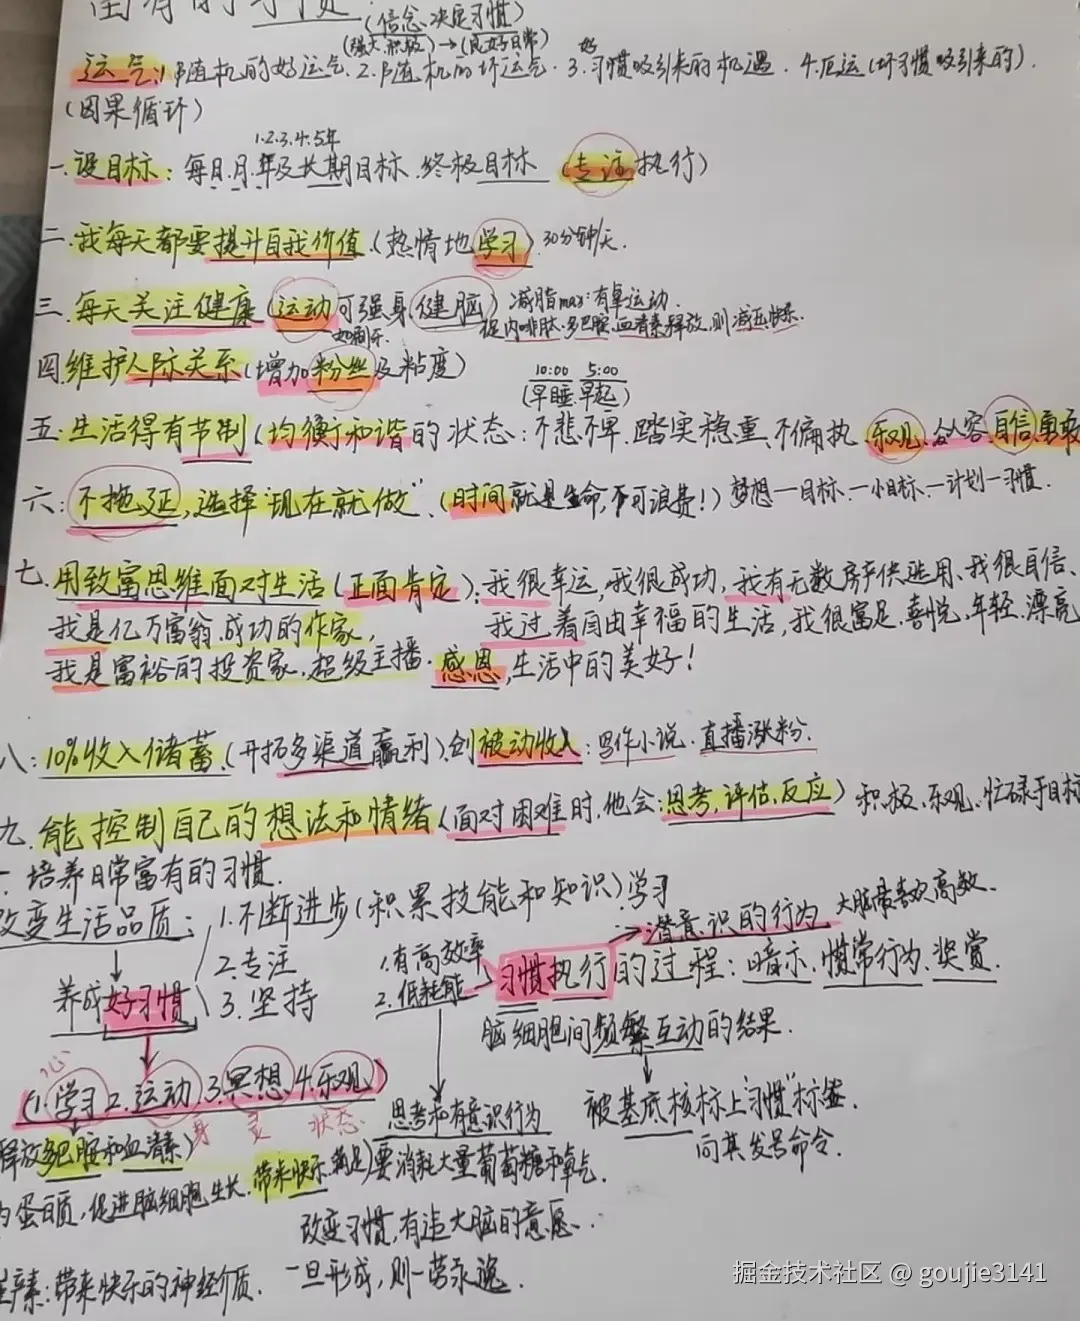 富有的习惯
(信念决定习惯)
(强大.积极)→(良好日常)
运气:1.随机的好运气.2.随机的坏运气.3.好习惯吸引来的机遇.4.厄运(坏习惯吸引来的).
(因果循环)
1.2.3.4.5年
一.设目标:每日.月.年及长期目标.终极目标(专注执行)
二.我每天都要提升自我价值(热情地学习)30分钟/天.
三.每天关注健康(运动可强身健脑)减脂max:有氧运动.
促内啡肽.多巴胺.血清素释放,则减压快乐.
四维护人际关系(增加粉丝及粘度)
10:00 5:00
(早睡.早起)
五.生活得有节制(均衡和谐的状态:不悲不卑.踏实稳重.不偏执.乐观.从容.自信勇敢
六:不拖延,选择"现在就做".(时间就是生命,不可浪费!)梦想一目标.一小目标.一计划一习惯.
七.用致富思维面对生活(正面肯定):我很幸运,我很成功,我有无数房产供选用、我很自信、
我是亿万富翁.成功的作家, 我过着自由幸福的生活,我很富足.喜悦.年轻.漂亮
我是富裕的投资家.超级主播.感恩,生活中的美好!
八:10%收入储蓄.(开拓多渠道赢利).创被动收入:写作小说.直播涨粉.
九.能控制自己的想法和情绪(面对困难时.他会:思考,评估.反应)积极.乐观.忙碌于目标
一.培养日常富有的习惯.
改变生活品质: 1.不断进步(积累技能和知识)学习
2.专注
3.坚持
养成好习惯
1.有高效率
2.低耗能
习惯执行的过程:暗示.惯常行为.奖赏.
潜意识的行为 大脑最喜欢高效.
脑细胞间频繁互动的结果.
被基底核标上"习惯"标签.
向其发号命令.
心
(1.学习2.运动.3.冥想.4.乐观)
身 灵 状态.
释放多巴胺和血清素)
的蛋白质,促进脑细胞生长.带来快乐.满足)
思考和有意识行为
要消耗大量葡萄糖和氧气.
改变习惯,有违大脑的意愿..
一旦形成,则一劳永逸.
素:带来快乐的神经介质.
掘金技术社区 @ goujie3141